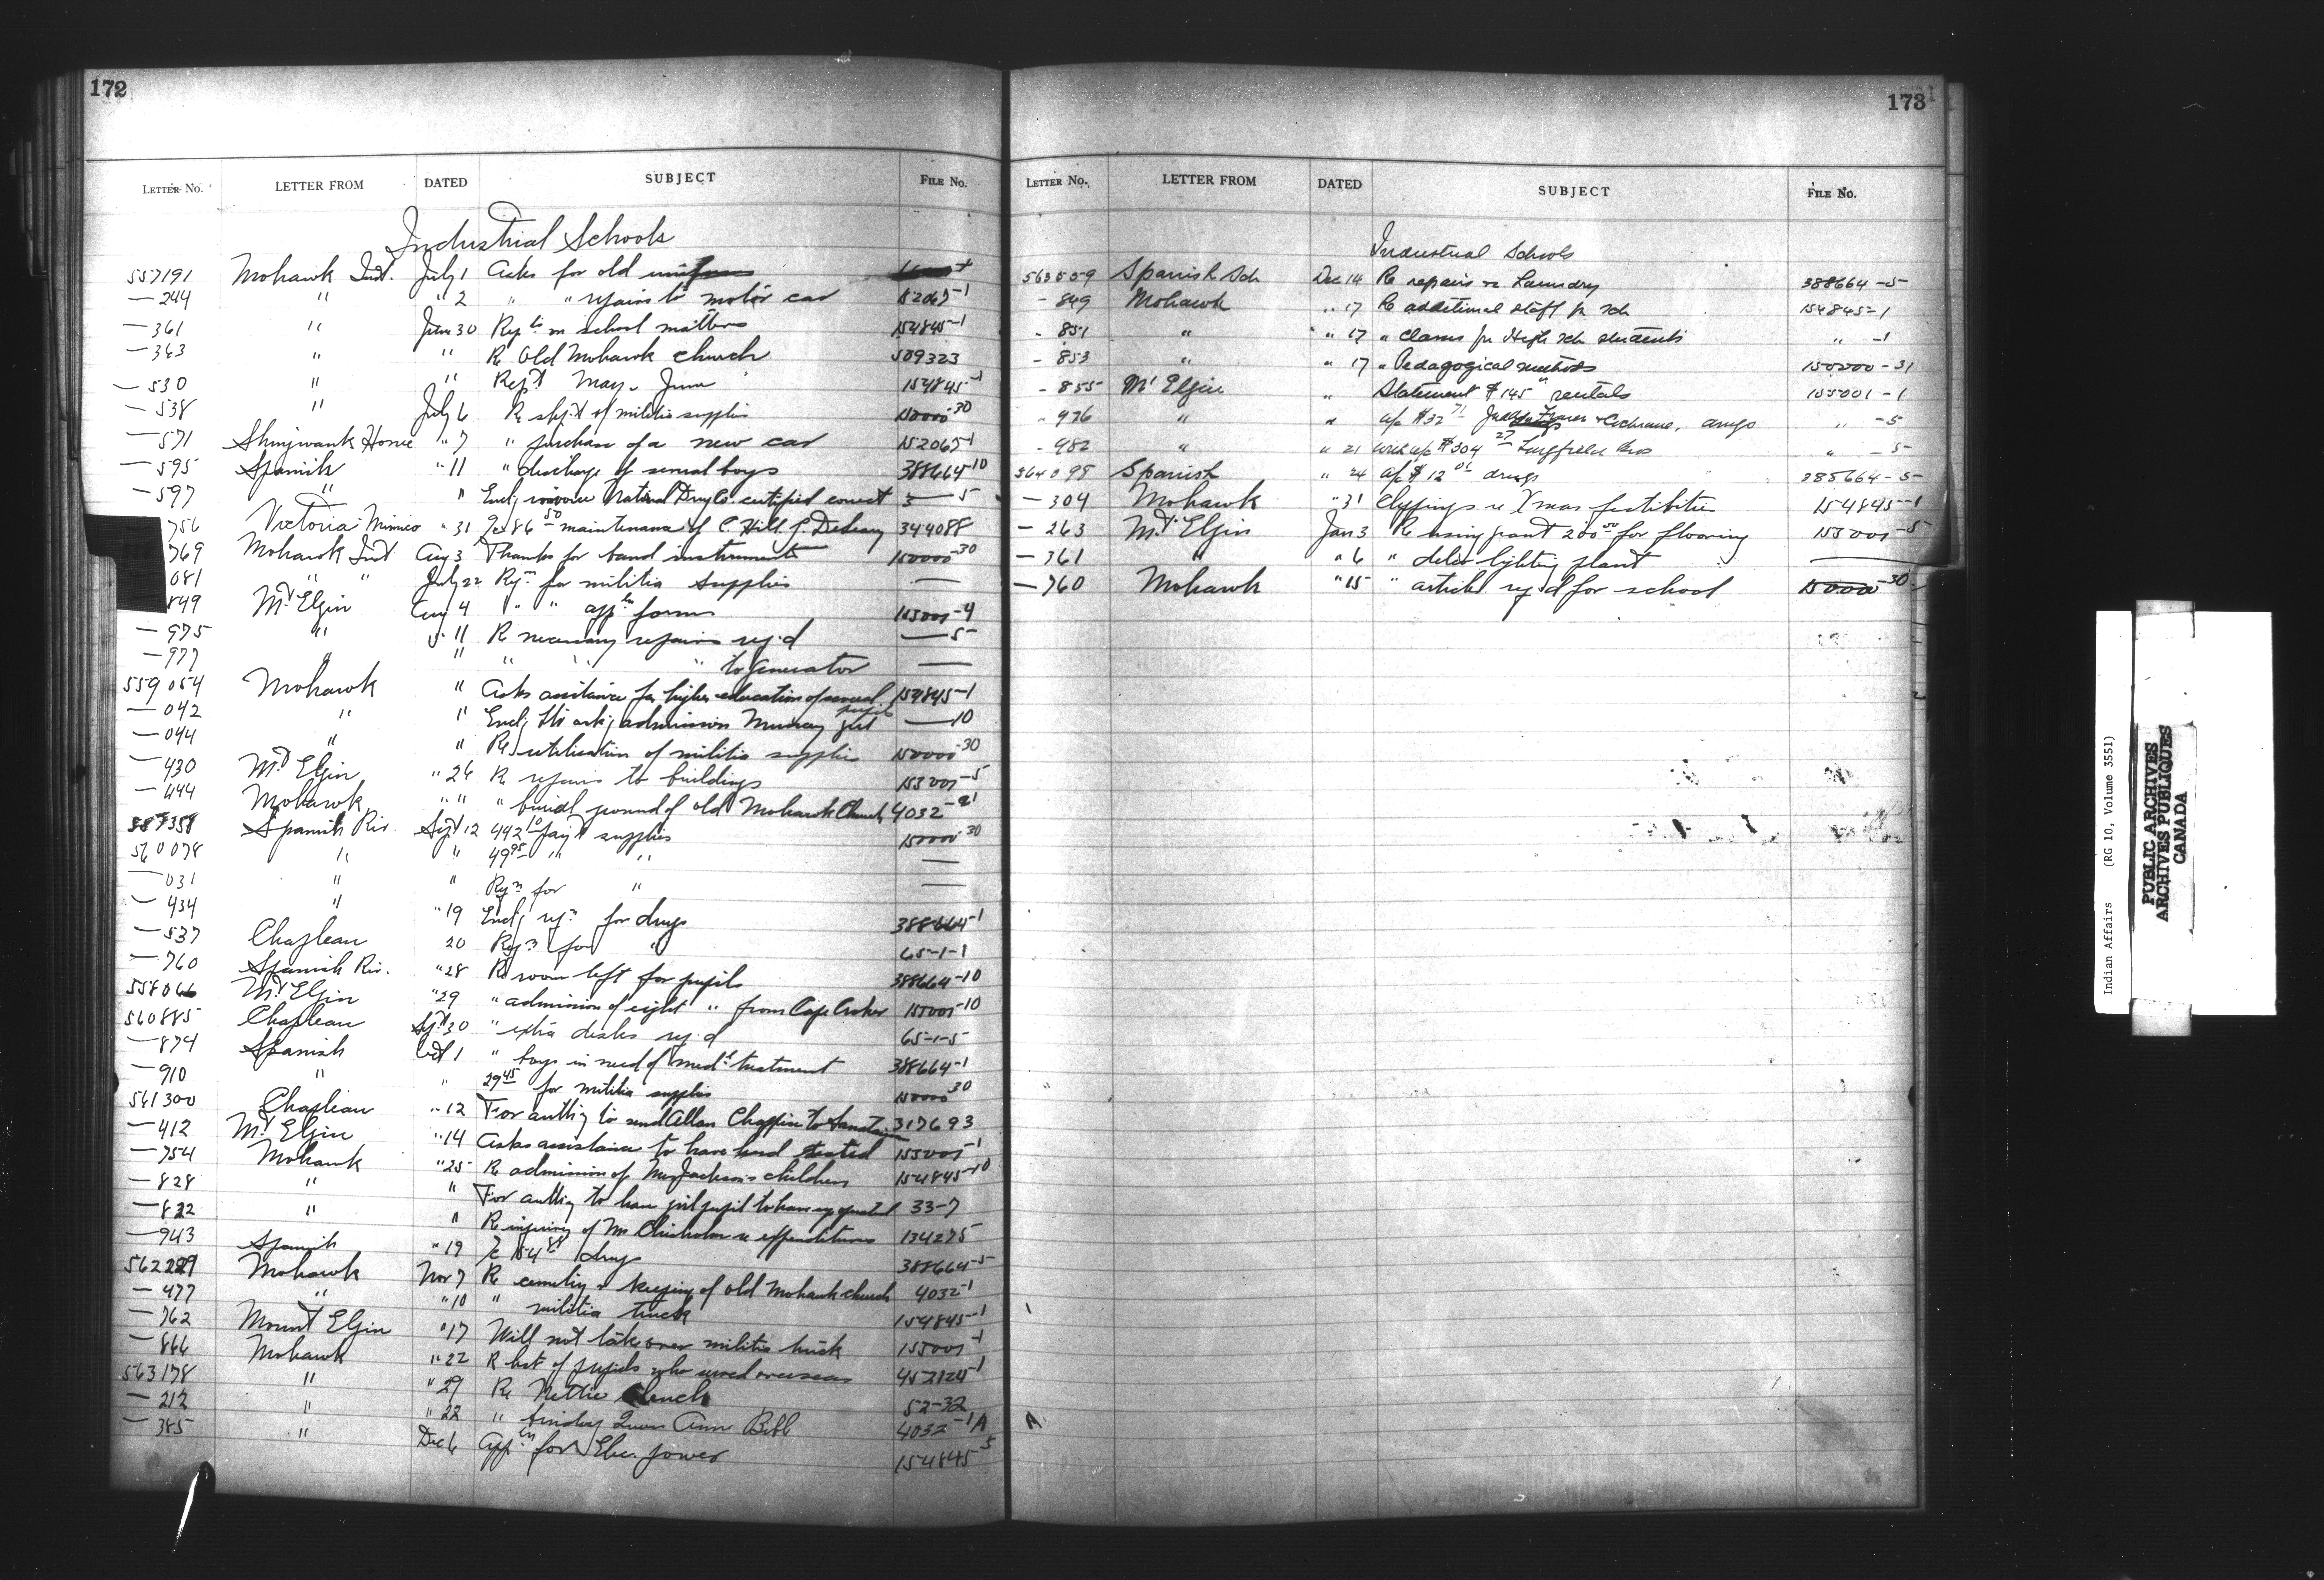 172
LETTER No. LETTER FROM DATED SUBJECT FILE No.
Industrial Schools
557191 Mohawk Ind. July 1 Asks for old uniforms
— 244 " " 2 " " repairs to motor car 152065-1
— 361 " June 30 Repts on school matters 154845-1
— 363 " " Re Old Mohawk church 509323
— 530 " " Rept May & June 154845-1
— 538 " July 6 Re shpt of militia supplies 150000-30
— 571 Shingwauk Home " 7 " purchase of a new car 152065-1
— 595 Spanish " 11 " discharge of several boys 388664-10
— 597 " " Encl; invoice National Drug Co. certified correct — 5
756 Victoria Mimico " 31 86 50 maintenance of C. Hill 344088
769 Mohawk Ind Aug 3 Thanks for band instruments 150000-30
081 " " July 22 Reqn for militia supplies —
849 Mt Elgin Aug 4 " " appln forms 155001-4
— 975 " " 11 Re necessary repairs req'd — 5
— 977 " " " " " to Generator —
559054 Mohawk " Asks assitance for higher education of several pupils 154845-1
— 042 " " Encl; ltr ask; admission Murray girl — 10
— 044 " " Re utilization of militia supplies 150000-30
— 430 Mt Elgin " 26 Re repairs to buildings 155001-5
— 444 Mohawk " " " burial ground of old Mohawk Church 4032-
557358 Spanish Riv. Sept 12 492 10 pay't supplies 150000-30
560078 " " 49 95 " " —
— 031 " " Reqn for " —
— 434 " " 19 Encl; reqn for drugs 388664-1
— 537 Chapleau 20 Reqn for " 65-1-1
— 760 Spanish Riv. " 28 Re room left for pupils 388664-10
558066 Mt Elgin " 29 " admission of eight " from Cape Croker 155001-10
560885 Chapleau Sept 30 " extra desks req'd 65-1-5
— 874 Spanish Oct 1 " boys in need of medl treatment 388664-1
— 910 " " 29 45 for militia supplies 150000 30
561300 Chapleau " 12 For authy to send Allan Chappise to Sanatarium 317693
— 412 Mt Elgin " 14 Asks assistance to have herd tested 155001-1
— 754 Mohawk " 25 Re admission of Mrs Jackson's children 154845-10
— 828 " " For authy to have girl pupil to have eye operated 33-7
— 822 " " Re inquiry of Mr Chisholm re expenditures 134275
— 943 Spanish " 19 154 88 drugs 388664-5
562229 Mohawk Nov 7 Re cemetery & keeping of old Mohawk church 4032-1
— 477 " " 10 " militia truck 154845-1
— 762 Mount Elgin " 17 Will not take over militia truck 155001-1
— 866 Mohawk " 22 R list of pupils who served overseas 452124-1
563178 " " 29 Re Nettie Clench 52-32
— 212 " " 22 " binding Queen Ann Bible 4032-1A
— 385 " Dec 6 Appln for Elec. power 154845 5
173
LETTER No. LETTER FROM DATED SUBJECT FILE No.
Industrial Schools
563559 Spanish Sch Dec 14 Re repairs re Laundry 388664-5
- 849 Mohawk " 17 Re additional staff for sch 154845-1
- 851 " " 17 " Claims for High sch students " -1
- 853 " " 17 " Pedagogical methods 150000-31
- 855 Mt Elgin " Statement $145 rentals 155001-1
- 976 " " a/c $32 71 & Cochrane, drugs " -5
- 982 " " 21 a/c $304 27 Bros " -5
564098 Spanish " 24 a/c $12 drugs 385664-5
— 304 Mohawk " 31 Clippings re Xmas festibities 154845-1
— 263 Mt. Elgin Jan 3 Re using grant 200 00 for flooring 155001-5
— 361 " " 6 " delco lighting plant —
— 760 Mohawk " 15 " articles req'd for school 150000-30
A
Indian Affairs (RG 10, Volume 3551)
PUBLIC ARCHIVES
ARCHIVES PUBLIQUES
CANADA